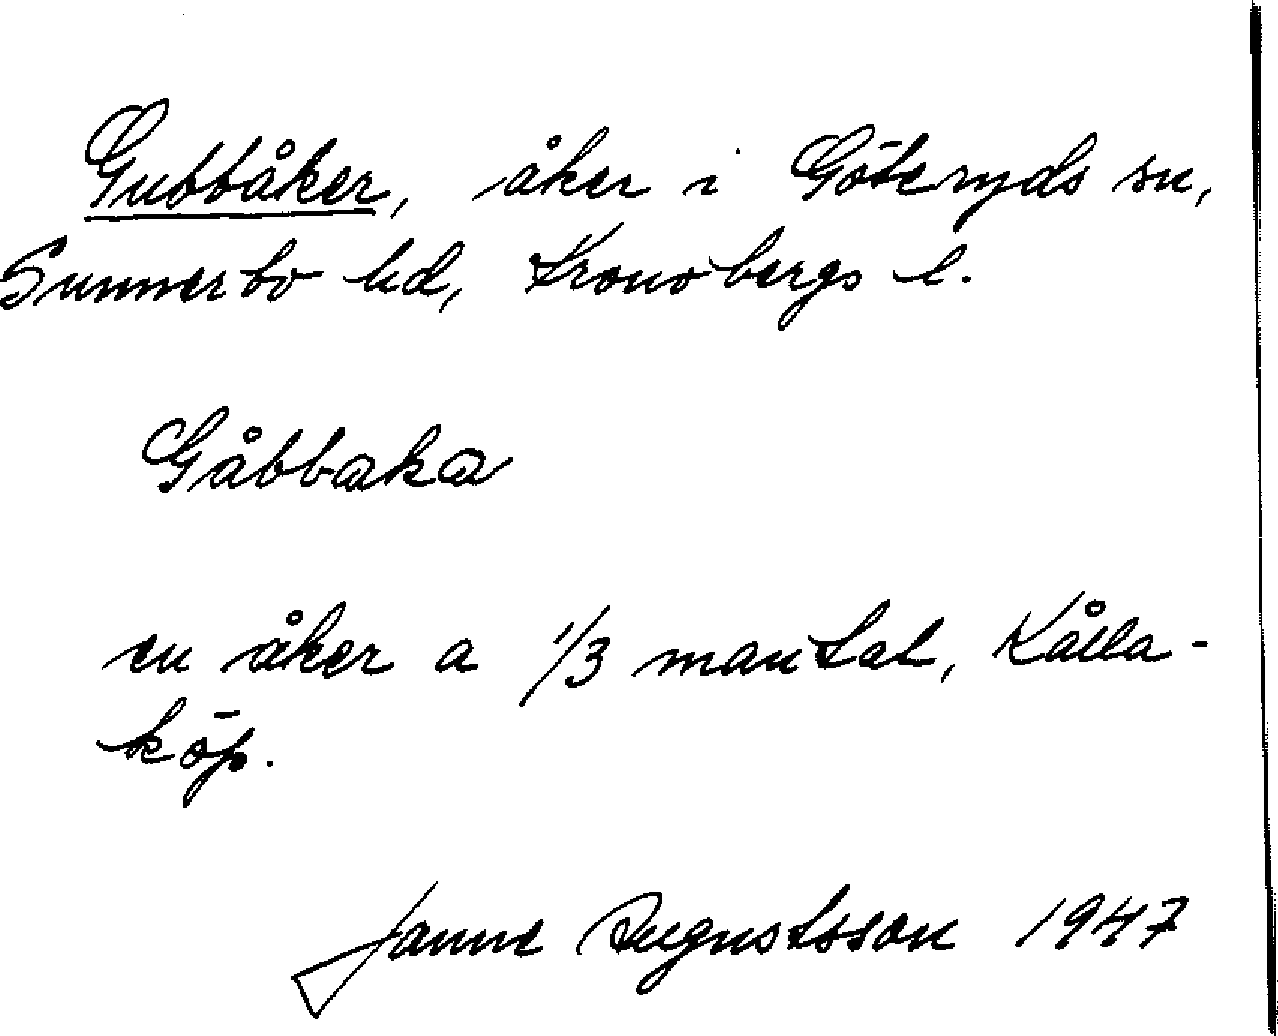 Gubbåker, åker i Göteryds sn,
Sunnerbo hd, Kronobergs l.
Gåbbaka
en åker a 1/3 mantal, Kålla-
köp.
Janne Augustsson 1947